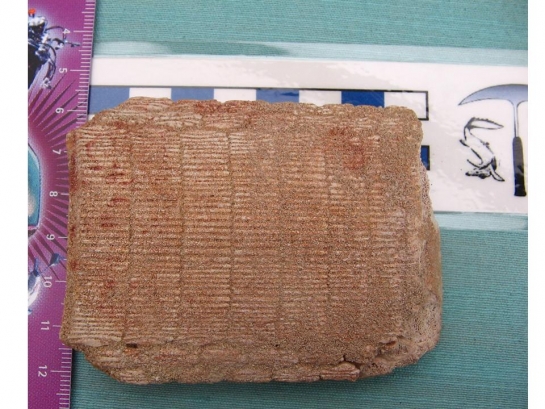 4
5
6
7
8
9
10
11
12